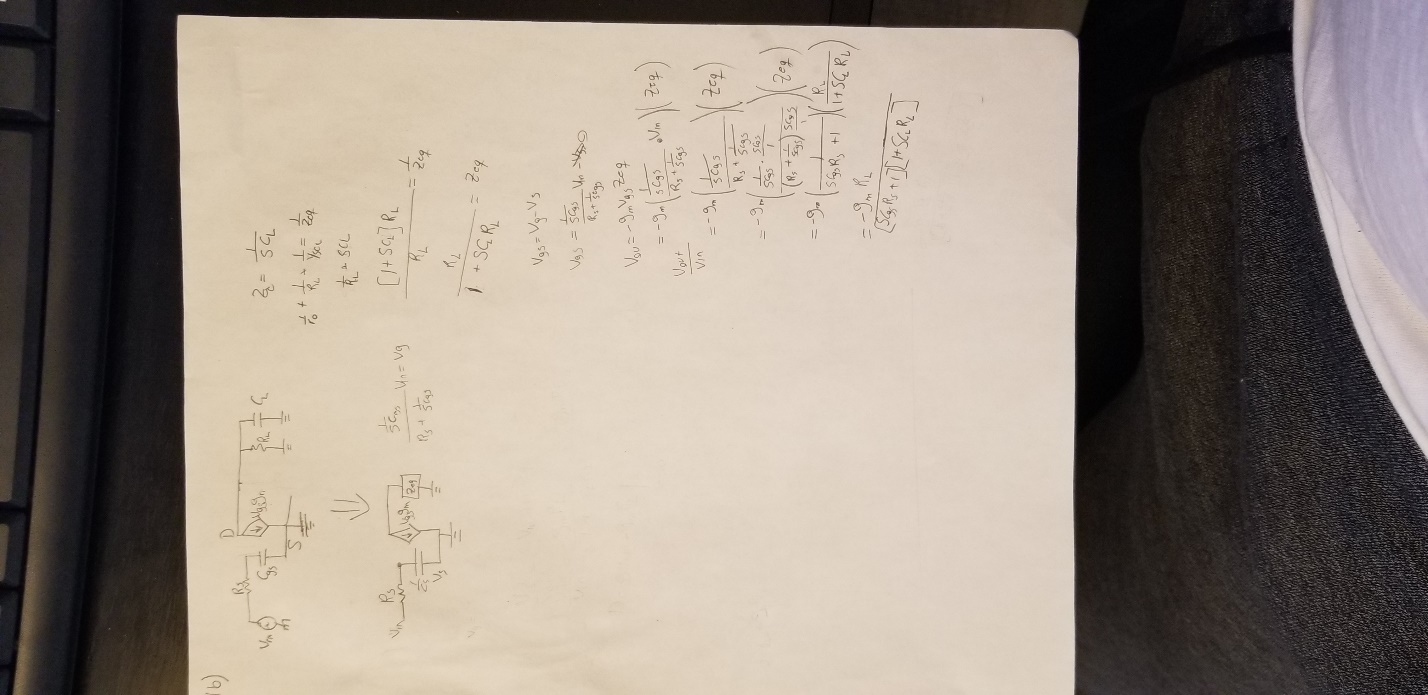 1b)
Vin Rs Cgs D Vgs gm S RL CL
Vin Rs 1/sCgs Vs Vgs gm Zeq
(1/sCgs)/(Rs + 1/sCgs) Vin = Vg
Zc = 1/SCL
1/ro + 1/RL + 1/(1/SCL) = 1/Zeq
1/RL + SCL
[1 + SCL]RL / RL = 1/Zeq
RL / (1 + SCL RL) = Zeq
Vgs = Vg - Vs
Vgs = (1/SCgs)/(Rs + 1/SCgs) Vin - Vs
Vout = -gm Vgs Zeq
= -gm((1/SCgs)/(Rs + 1/SCgs) • Vin)(Zeq)
Vout/Vin = -gm((1/SCgs)/(Rs + 1/SCgs))(Zeq)
= -gm(1/SCgs · 1/((Rs + 1/SCgs) SCgs))(Zeq)
= -gm(1/(SCgs Rs + 1))(RL/(1 + SCL RL))
= -gm RL / [SCgs Rs + 1][1 + SCL RL]